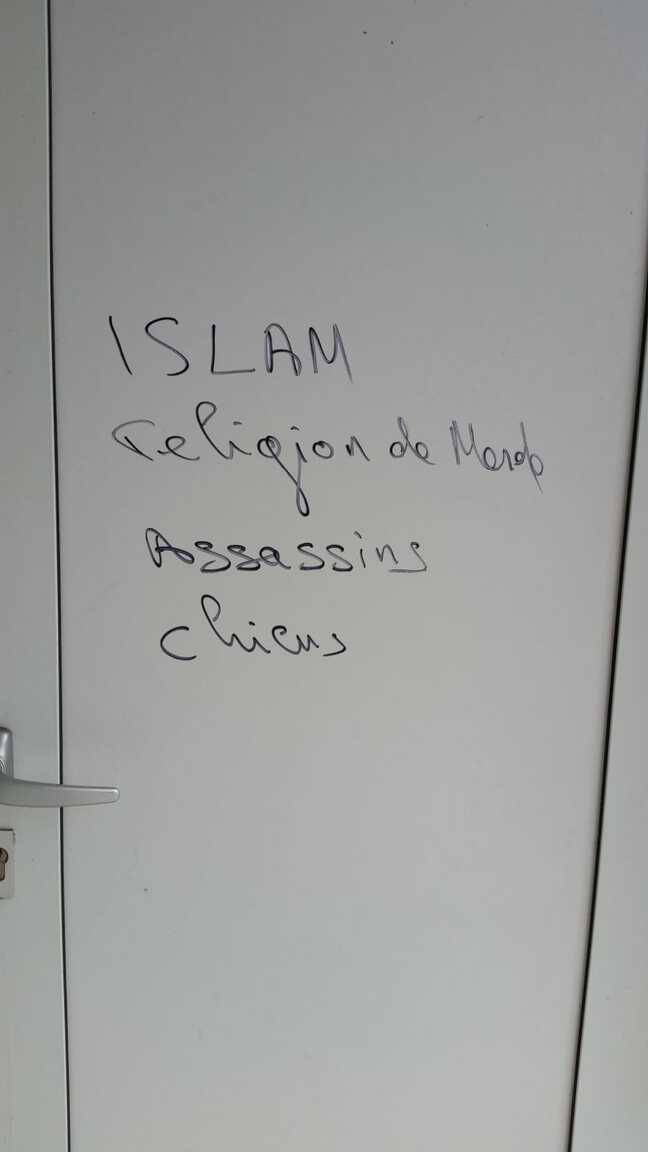 ISLAM
religion de Merde
Assassins
chiens